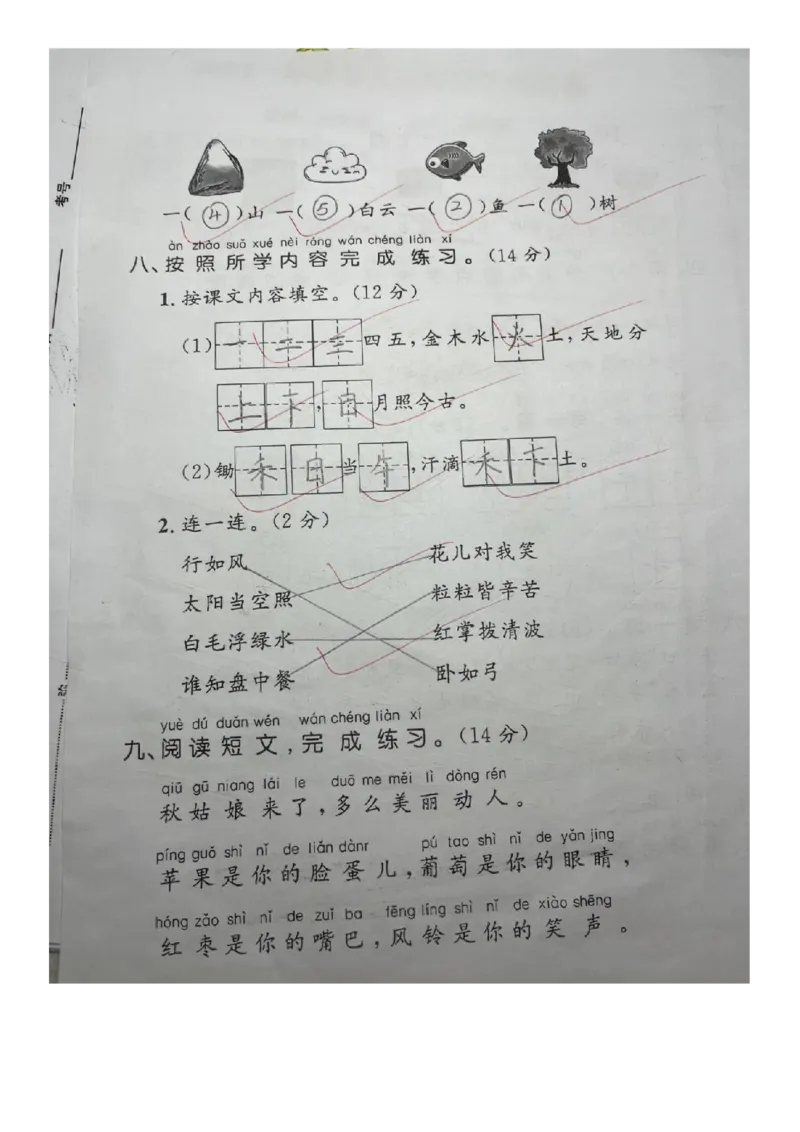 考号
一(④)山 一(⑤)白云 一(②)鱼 一(①)树
àn zhào suǒ xué nèi róng wán chéng liàn xí
八、按照所学内容完成练习。(14分)
1. 按课文内容填空。(12分)
(1)一二三四五,金木水火土,天地分
上下,日月照今古。
(2)锄禾日当午,汗滴禾下土。
2. 连一连。(2分)
行如风 花儿对我笑
太阳当空照 粒粒皆辛苦
白毛浮绿水 红掌拨清波
谁知盘中餐 卧如弓
yuè dú duǎn wén wán chéng liàn xí
九、阅读短文,完成练习。(14分)
qiū gū niang lái le duō me měi lì dòng rén
秋姑娘来了,多么美丽动人。
píng guǒ shì nǐ de liǎn dànr pú tao shì nǐ de yǎn jing
苹果是你的脸蛋儿,葡萄是你的眼睛,
hóng zǎo shì nǐ de zuǐ ba fēng líng shì nǐ de xiào shēng
红枣是你的嘴巴,风铃是你的笑声。